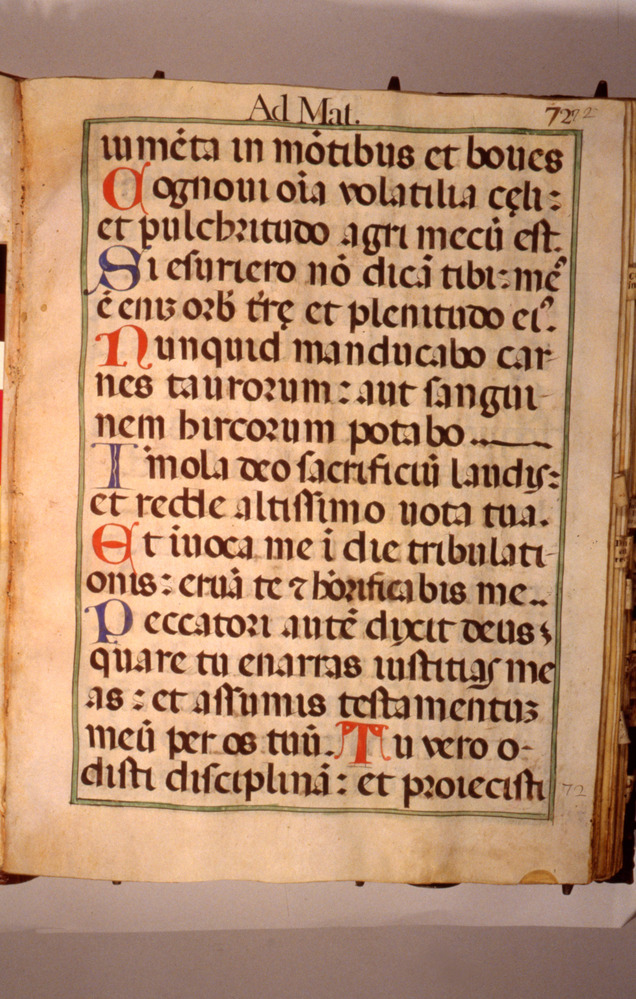 Ad Mat.
72 72
iumēta in mōtibus et boues
Cognoui oīa volatilia cęli:
et pulchritudo agri mecū est.
Si esuriero nō dicā tibi: me᷒
ē eniꝫ orb᷒ tr̄ę et plenitudo ei᷒.
Nunquid manducabo car-
nes taurorum: aut sangui-
nem hircorum potabo.
Imola deo sacrificiū laudis:
et redde altissimo uota tua.
Et īuoca me ī die tribulati-
onis: eruā te ⁊ hōrificabis me..
Peccatori autē dixit deus;
quare tu enarras iustitias me
as: et assumis testamentuꝫ
meū per os tuū. Tu vero o-
disti disciplinā: et proiecisti
72